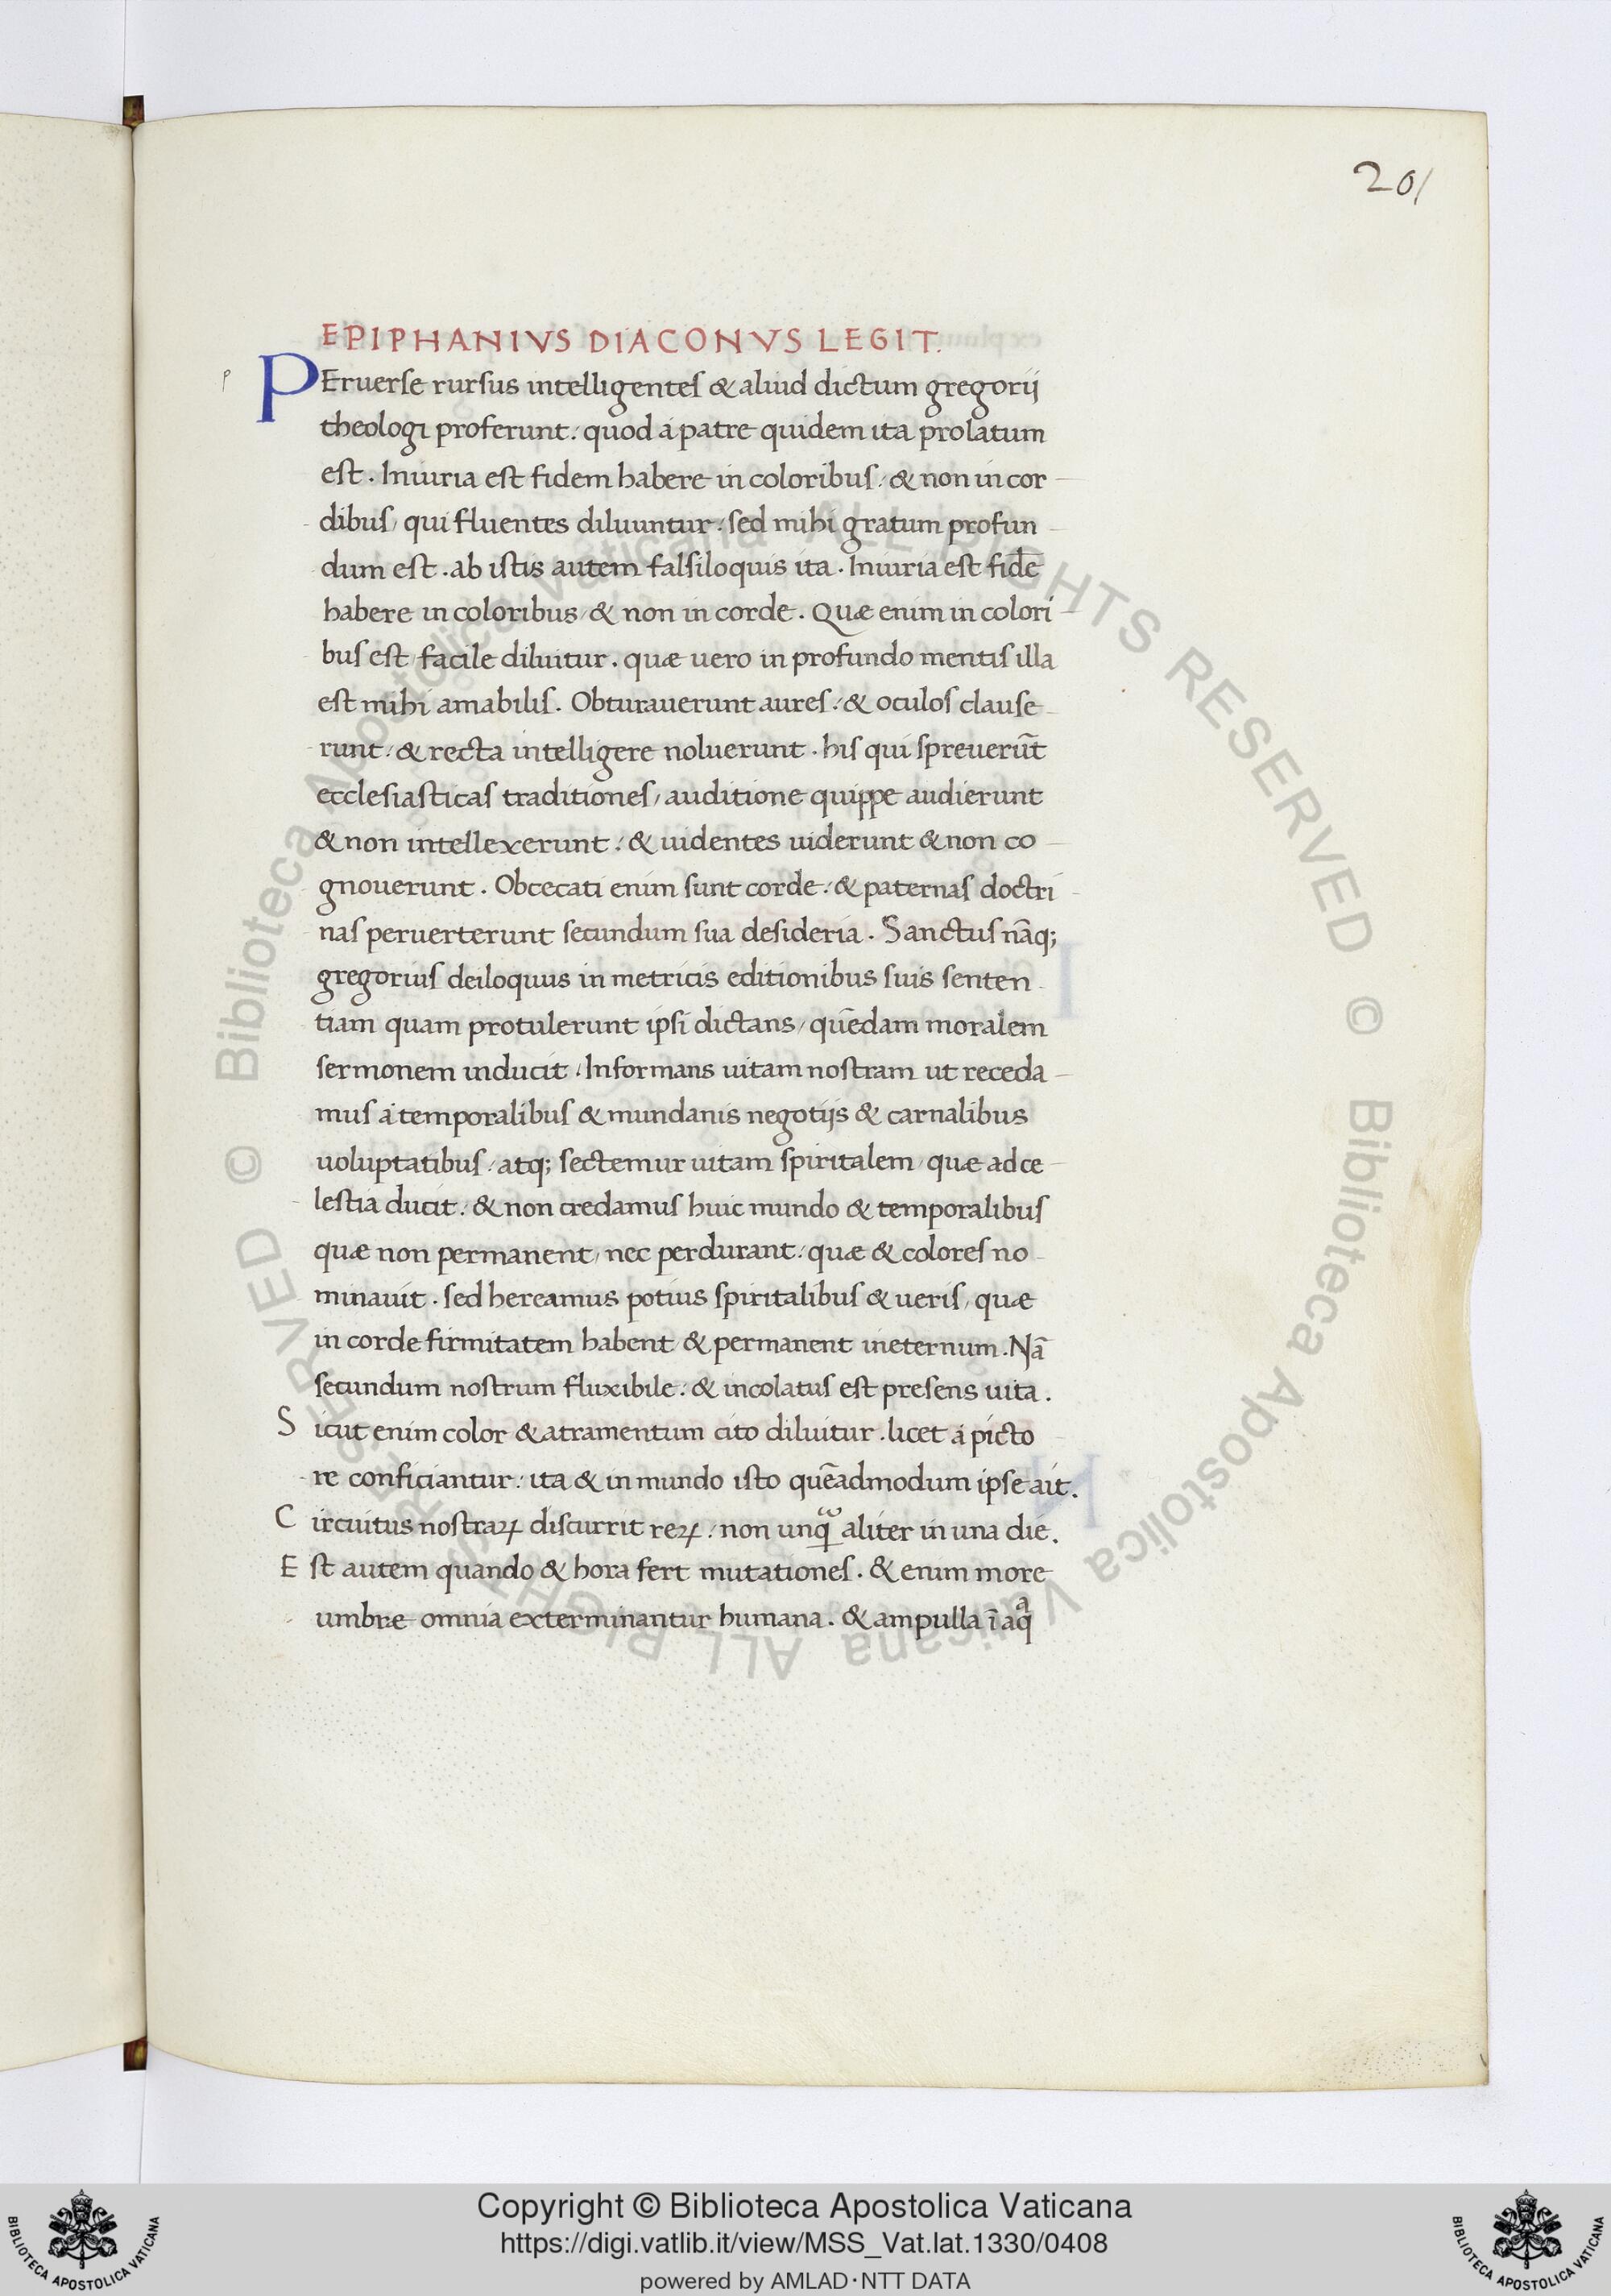 201
EPIPHANIVS DIACONVS LEGIT.
p PEruerse rursus intelligentes & aliud dictum gregorij
theologi proferunt: quod a patre quidem ita prolatum
est. Iniuria est fidem habere in coloribus: & non in cor
dibus, qui fluentes diluuntur: sed mihi gratum profun
dum est. ab istis autem falsiloquis ita. Iniuria est fidē
habere in coloribus, & non in corde. Quæ enim in colori
bus est facile diluitur. quæ uero in profundo mentis illa
est mihi amabilis. Obturauerunt aures: & oculos clause
runt: & recta intelligere noluerunt. his qui spreuerūt
ecclesiasticas traditiones, auditione quippe audierunt
& non intellexerunt: & uidentes uiderunt & non co
gnouerunt. Obcecati enim sunt corde: & paternas doctri
nas peruerterunt secundum sua desideria. Sanctus nāq;
gregorius deiloquus in metricis editionibus suis senten
tiam quam protulerunt ipsi dictans, quēdam moralem
sermonem inducit. Informans uitam nostram ut receda
mus a temporalibus & mundanis negotijs & carnalibus
uoluptatibus: atq; sectemur uitam spiritalem, quæ ad ce
lestia ducit: & non credamus huic mundo & temporalibus
quæ non permanent, nec perdurant: quæ & colores no
minauit. sed hereamus potius spiritalibus & ueris, quæ
in corde firmitatem habent & permanent ineternum. Nā
secundum nostrum fluxibile: & incolatus est presens uita.
Sicut enim color & atramentum cito diluitur. licet a picto
re conficiantur: ita & in mundo isto quēadmodum ipse ait.
Circuitus nostraꝝ discurrit reꝝ: non unꝙ aliter in una die.
Est autem quando & hora fert mutationes. & enim more
umbræ omnia exterminantur humana. & ampulla ī aqͣ
Copyright © Biblioteca Apostolica Vaticana
https://digi.vatlib.it/view/MSS_Vat.lat.1330/0408
powered by AMLAD·NTT DATA
BIBLIOTECA APOSTOLICA VATICANA
BIBLIOTECA APOSTOLICA VATICANA
© Biblioteca Apostolica Vaticana ALL RIGHTS RESERVED © Biblioteca Apostolica Vaticana ALL RIGHTS RESERVED